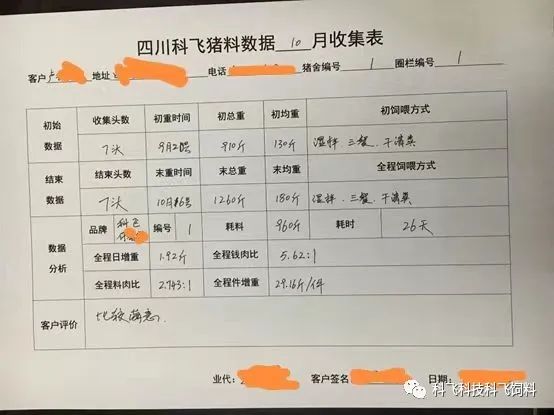 四川科飞猪料数据 10 月收集表
客户 卢 地址 电话 猪舍编号 1 圈栏编号 1
初始数据 收集头数 初重时间 初总重 初均重 初饲喂方式
7头 9月20号 910斤 130斤 湿拌、三餐、干清粪
结束数据 结束头数 末重时间 末总重 末均重 全程饲喂方式
7头 10月16号 1260斤 180斤 湿拌、三餐、干清粪
数据分析 品牌 科飞 编号 1 耗料 960斤 耗时 26天
全程日增重 1.92斤 全程钱肉比 5.62:1
全程料肉比 2.743:1 全程件增重 29.16斤/件
客户评价 比较满意.
业代: 客户签名 日期:
科飞科技科飞饲料